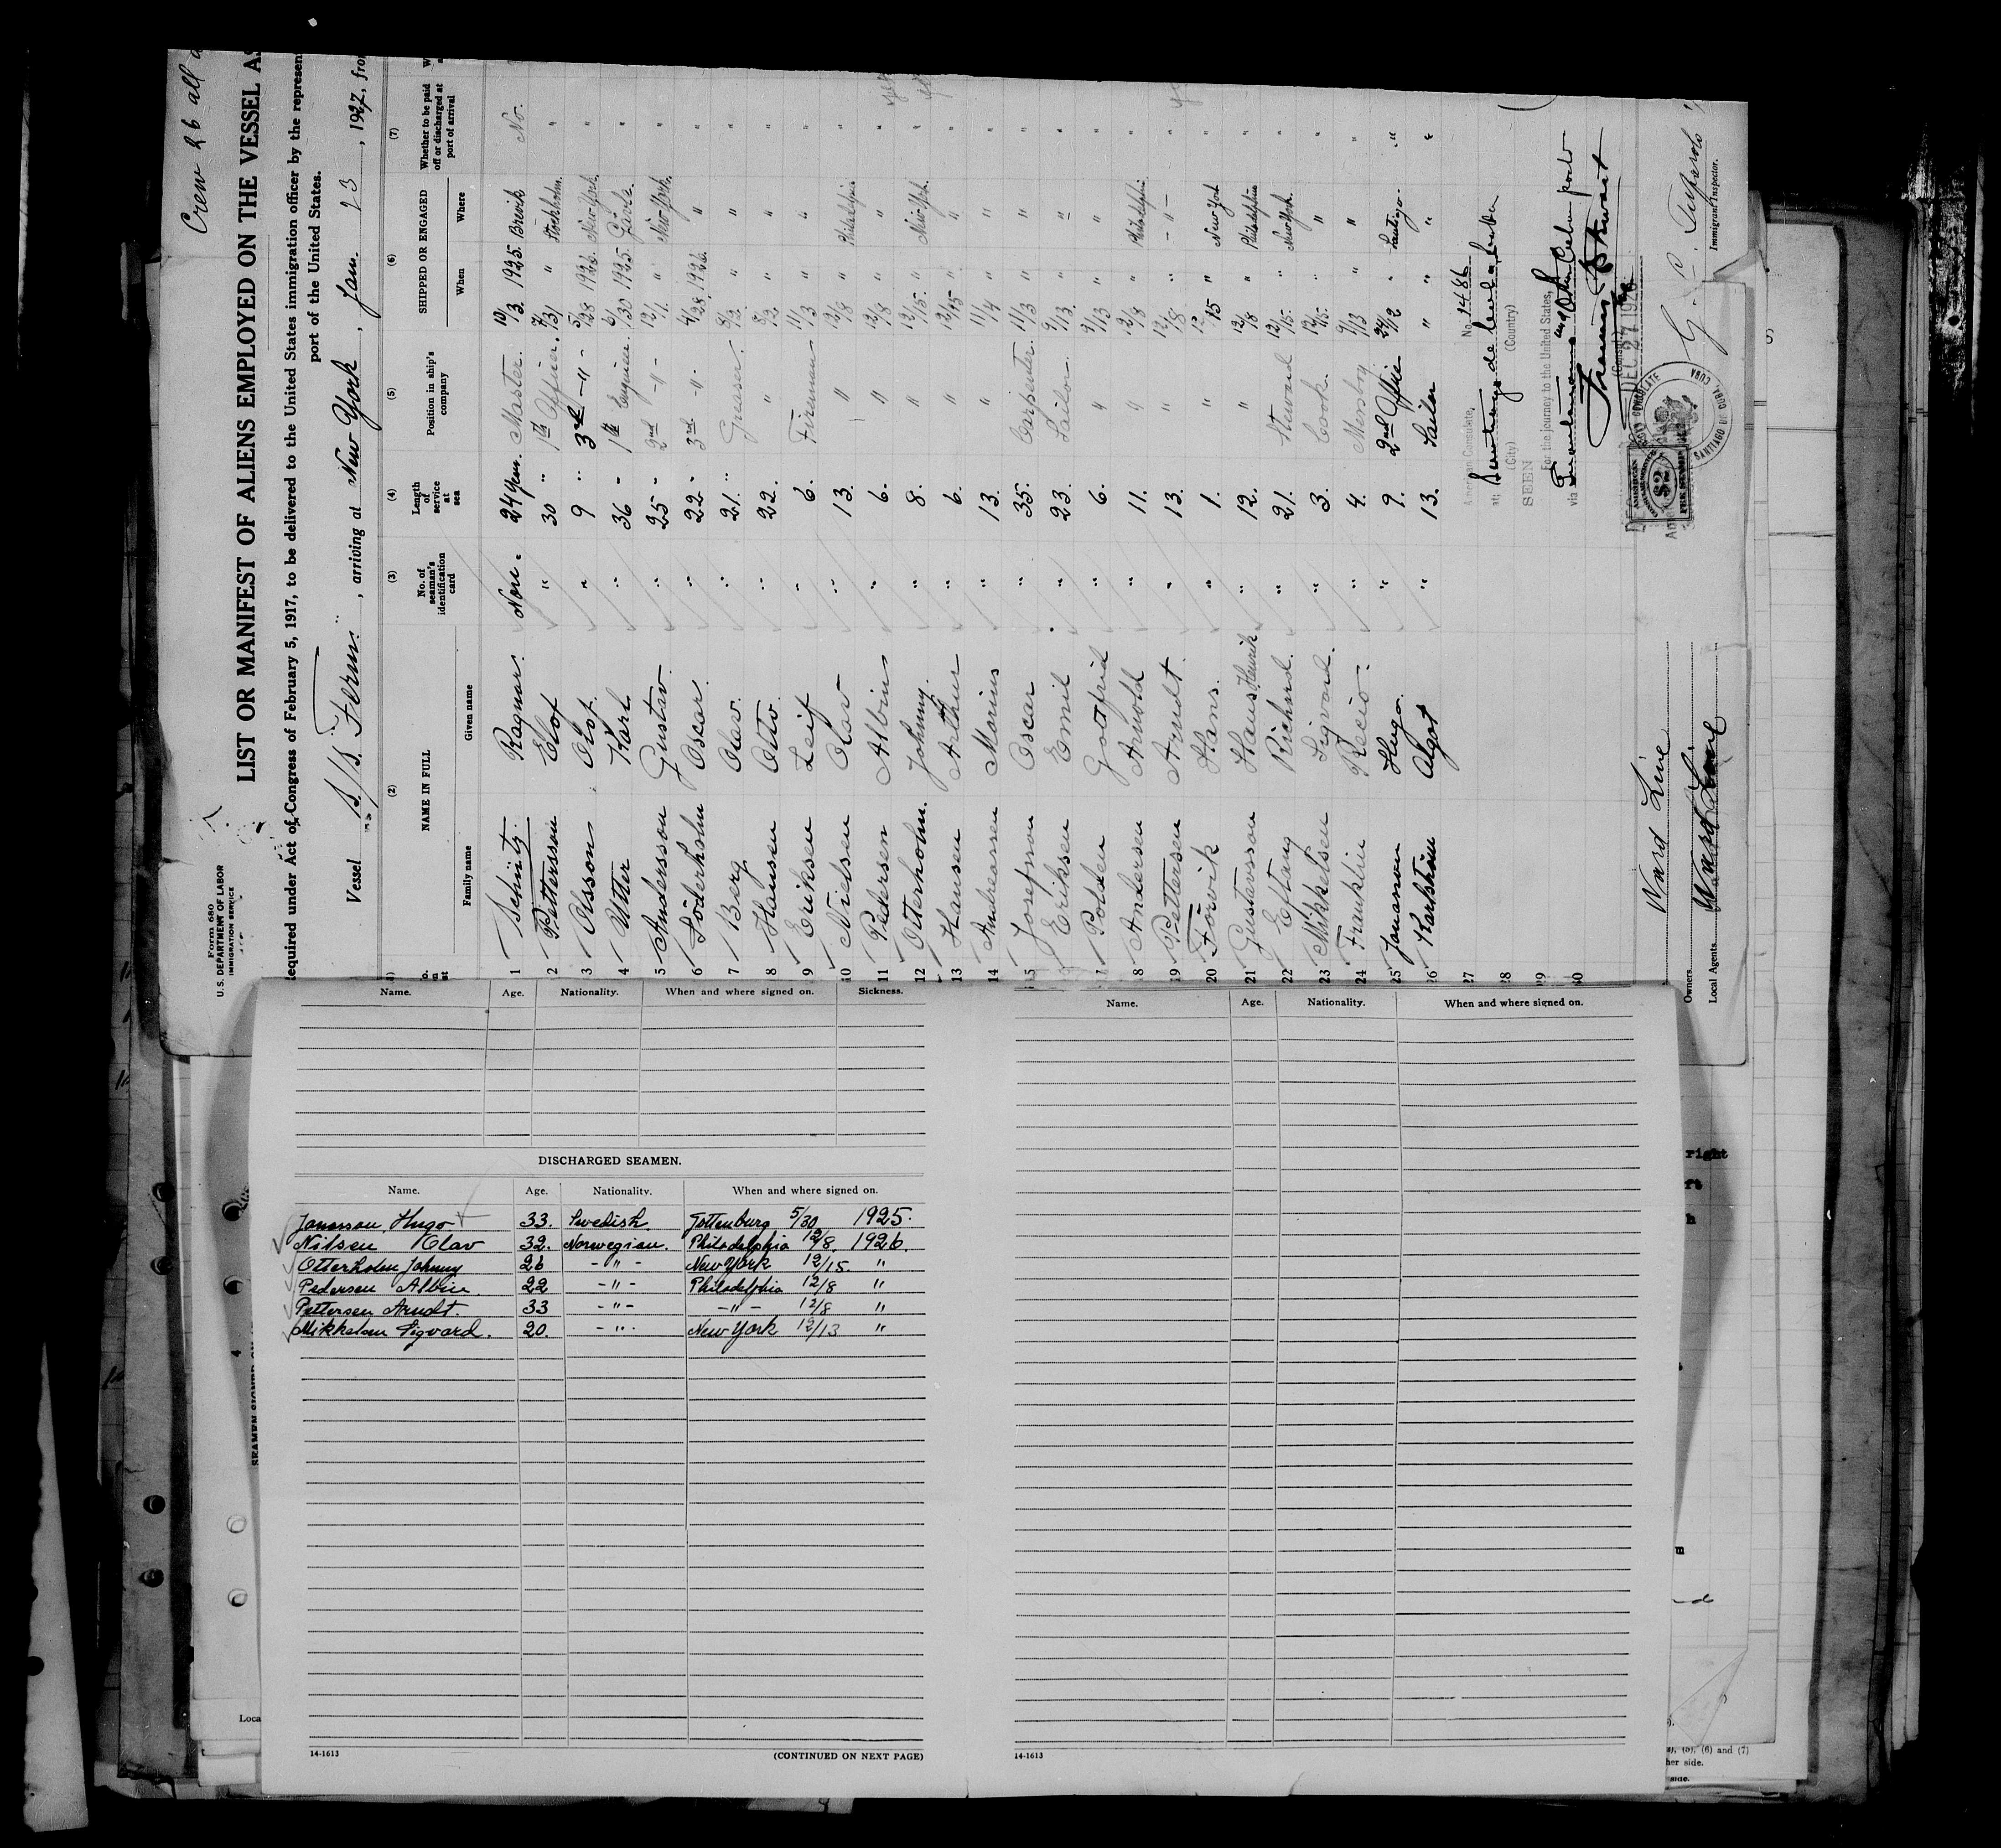 Crew 26 all
Form 680
U.S. DEPARTMENT OF LABOR
IMMIGRATION SERVICE
LIST OR MANIFEST OF ALIENS EMPLOYED ON THE VESSEL AS
Required under Act of Congress of February 5, 1917, to be delivered to the United States immigration officer by the represen
port of the United States.
Vessel S/S. Ferm , arriving at New York , Jan. 23 , 1927, fro
(2) (3) (4) (5) (6) (7)
NAME IN FULL No. of seaman's identification card Length of service at sea Position in ship's company SHIPPED OR ENGAGED Whether to be paid off or discharged at port of arrival
Family name Given name When Where
1 Schultz Ragnar. None. 24 Years. Master. 10/3. 1925. Brevik No.
2 Pettersson Elof " 30 " 1th Officer. " Stockholm. "
3 Olsson Olof. " 9 " 3rd -"- 5/28 1926. New-York. "
4 Utter Karl " 36 - 1th Engineer. 6/30 1925. Gävle. "
5 Andersson Gustav. " 25 - 2nd -"- 12/1. " New-York. "
6 Söderholm Oscar. " 22 - 3rd -"- 4/28. 1926. " "
7 Berg Olav. " 21. " Greaser. 8/2. " " "
8 Hansen Otto. " 22. " 8/2. " " "
9 Eriksen Leif " 6. Fireman 11/3 " " "
10 Nielsen Olav " 13. " 12/8 " Philadelphia "
11 Pedersen Albin " 6. " 12/8 " " "
12 Oterholm. Johnny. " 8. " 12/15. " New-York. "
13 Hansen Arthur " 6. " 12/15 " " "
14 Andreassen Marius " 13. " 11/4 " " "
15 Josefsson Oscar " 35. Carpenter. 11/3 " " "
Eriksen Emil " 23. Sailor. 9/13. " " "
Polden Gotfrid " 6. " 9/13 " " "
18 Andersen Arnold " 11. " 12/8 " Philadelphia "
19 Pettersen Arndt. " 13. " 12/8. " -"- "
20 Förvik Hans. " 1. " 12/15 " New York "
21 Gustavsson Hans Henrik " 12. " 12/18 " Philadelphia "
22 Eftang Richard. " 21. Steward 12/15. " New York. "
23 Mikkelsen Sigvard. " 3. Cook. 12/15. " " "
24 Franklin Recio. " 4. Messboy 9/13 " " "
25 Jonasson Hugo. " 9. 2nd Officer 24/12 " Santiago. "
26 Karlström Algot " 13. Sailor " " " "
27
28
29
30
American Consulate, No. 1486
at: Santiago de Cuba, Cuba
(City) (Country)
SEEN
For the journey to the United States,
via Guantanamo and other Cuban ports
(Consul)
DEC 27 1926
AMERICAN CONSULATE
SANTIAGO DE CUBA, CUBA
AMERICAN
$2
FEE STAMP
Immigrant Inspector.
Owners Ward Line
Local Agents Ward Line
Name. Age. Nationality. When and where signed on. Sickness.
DISCHARGED SEAMEN.
Name. Age. Nationality. When and where signed on.
Jonasson, Hugo 33. Swedish. Gottenburg 5/30 1925.
Nilsen Olav 32. Norwegian. Philadelphia 12/8. 1926.
Otterholm Johnny 26 -"- New York 12/15. "
Pedersen Albin 22 -"- Philadelphia 12/8 "
Pettersen Arndt. 33 -"- -"- 12/8 "
Mikkelsen Sigvard. 20. -". New York 12/13 "
14-1613 (CONTINUED ON NEXT PAGE)
Name. Age. Nationality. When and where signed on.
14-1613
right
4
Loca
(5), (6) and (7)
her side.
side.